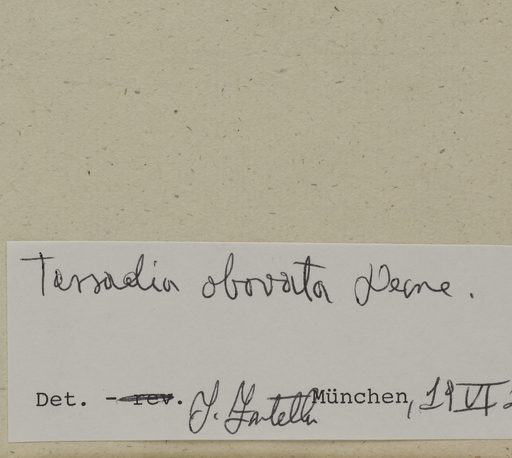 Tassadia obovata Decne.
Det. - rev. J. Fontella München, 19 VI